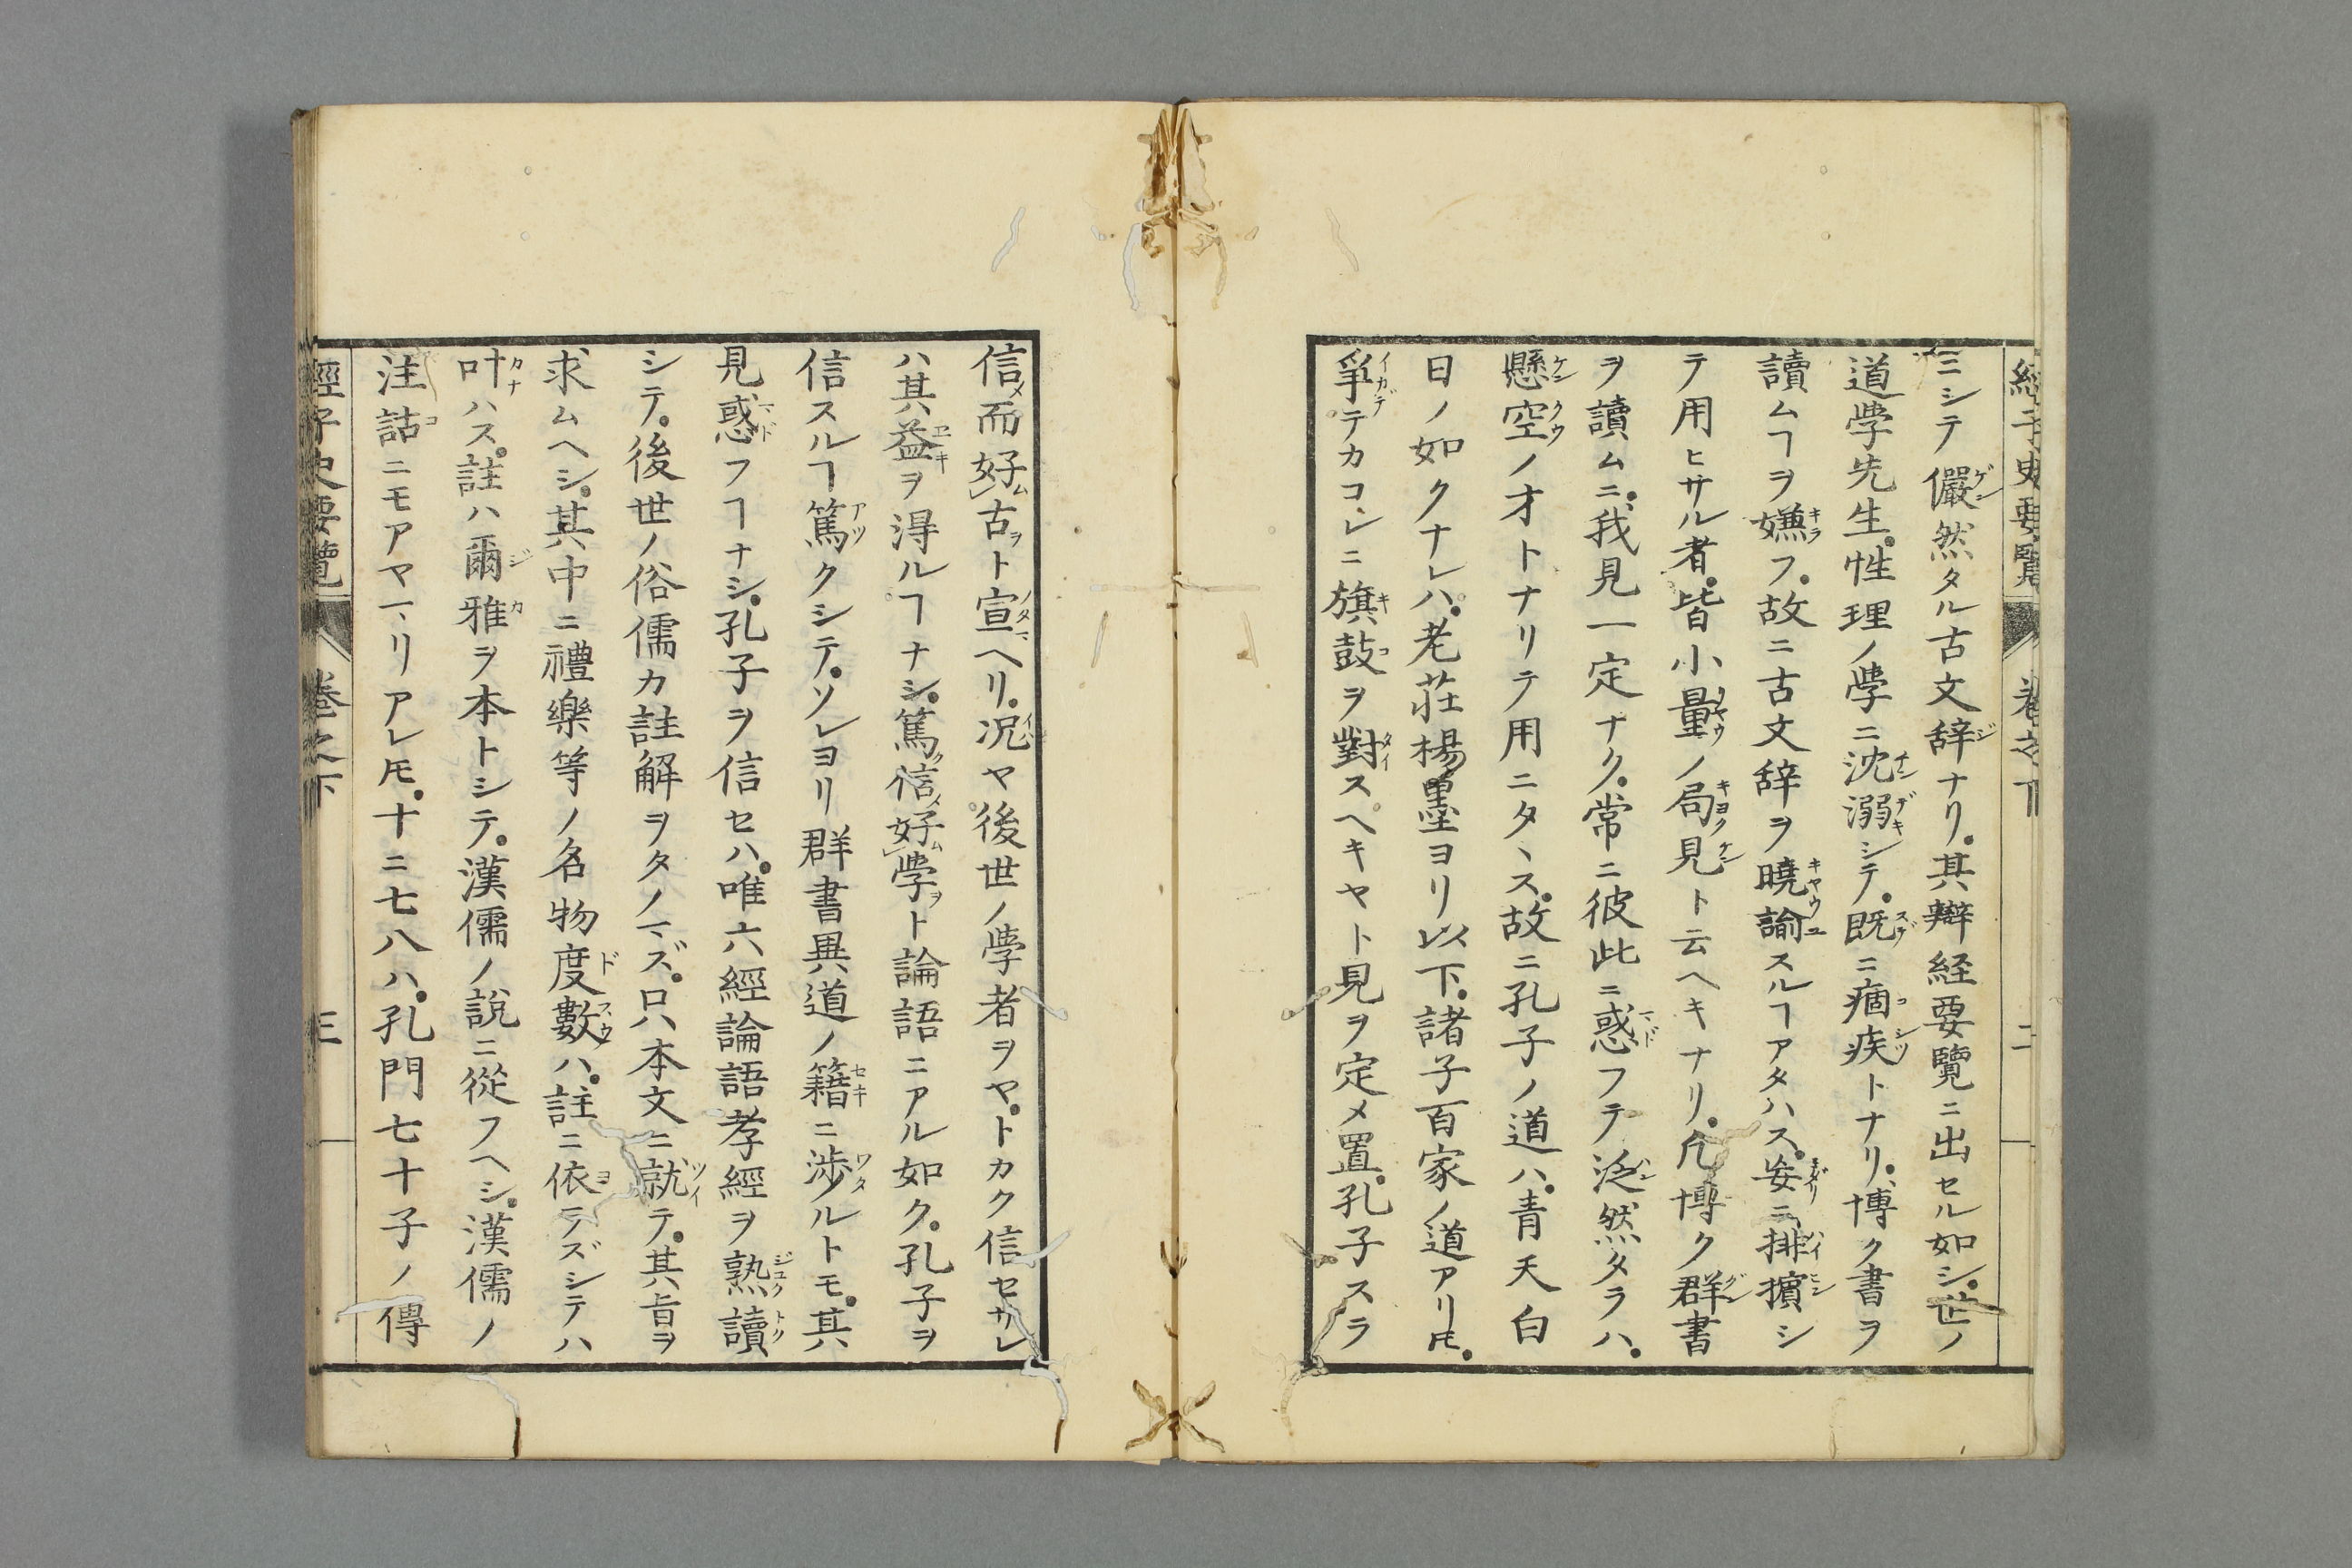 經子史要覽 卷之下 二
ニシテ儼然タル古文辞ナリ。其辯経要覽ニ出セル如シ。世ノ
道学先生。性理ノ學ニ沈溺シテ。既ニ痼疾トナリ。博ク書ヲ
讀ムヿヲ嫌フ。故ニ古文辞ヲ曉諭スルヿアタハス。妄ニ排擯シ
テ用ヒサル者。皆小量ノ局見ト云ヘキナリ。凢博ク群書
ヲ讀ムニ。我見一定ナク。常ニ彼此ニ惑フテ泛然タラハ。
懸空ノオトナリテ用ニタヽス。故ニ孔子ノ道ハ。青天白
日ノ如クナレハ。老莊楊墨ヨリ以下。諸子百家ノ道アリ𪜈。
争テカコレニ旗鼓ヲ對スヘキヤト見ヲ定メ置。孔子スラ
信メ而好ム古ヲト宣ヘリ。况ヤ後世ノ學者ヲヤ。トカク信セサレ
ハ其益ヲ淂ルヿナシ。篤ク信メ好ム學ヲト論語ニアル如ク。孔子ヲ
信スルヿ篤クシテ。ソレヨリ群書異道ノ籍ニ渉ルトモ。其
見惑フヿナシ。孔子ヲ信セハ。唯六經論語孝經ヲ熟讀
シテ。後世ノ俗儒カ註解ヲタノマズ。只本文ニ就テ。其旨ヲ
求ムヘシ。其中ニ禮樂等ノ名物度數ハ。註ニ依ラズシテハ
叶ハス。註ハ爾雅ヲ本トシテ。漢儒ノ說ニ從フヘシ。漢儒ノ
注詁ニモアヤマリアレ𪜈。十ニ七八ハ。孔門七十子ノ傳
經子史要覽 卷之下 三